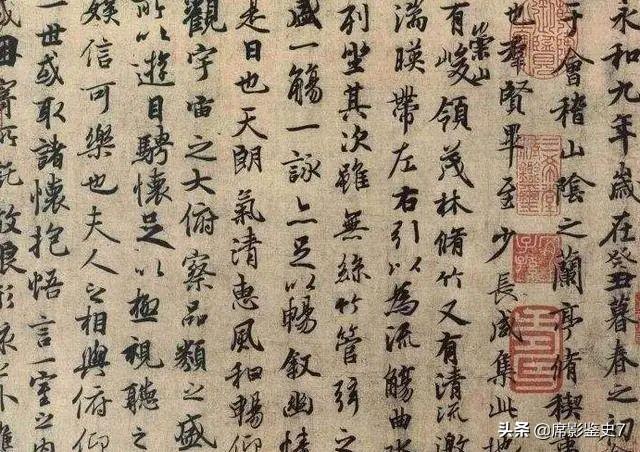 永和九年歲在癸丑暮春之初
于會稽山陰之蘭亭脩稧事
也羣賢畢至少長咸集此地
有崇山峻領茂林脩竹又有清流激
湍暎帶左右引以為流觴曲水
列坐其次雖無絲竹管弦之
盛一觴一詠亦足以暢叙幽情
是日也天朗氣清惠風和暢仰
觀宇宙之大俯察品類之盛
所以遊目騁懷足以極視聽之
娛信可樂也夫人之相與俯仰
一世或取諸懷抱悟言一室之內
或因寄所託放浪形骸之外雖
头条 @席影鉴史7